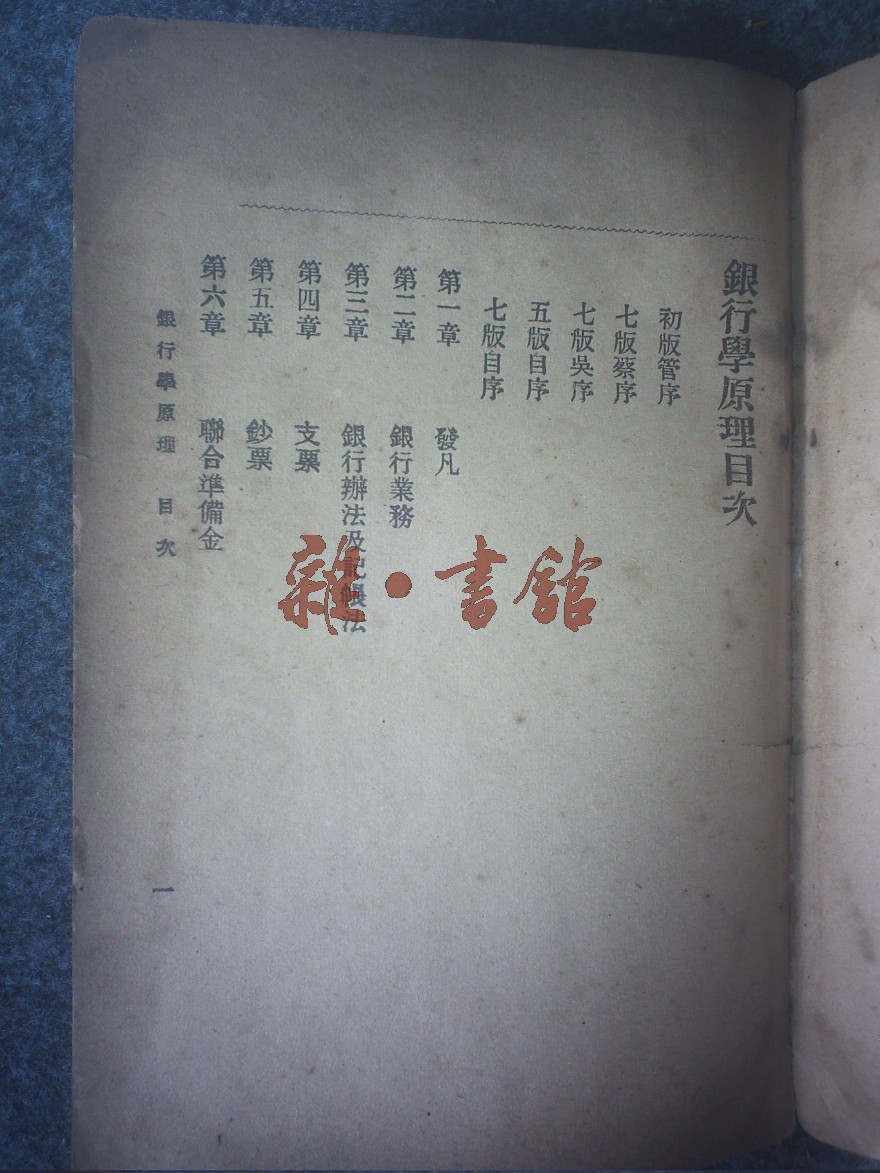 銀行學原理目次
初版管序
七版蔡序
七版吳序
五版自序
七版自序
第一章 發凡
第二章 銀行業務
第三章 銀行辦法及記帳法
第四章 支票
第五章 鈔票
第六章 聯合準備金
銀行學原理 目次
一
雜·書館